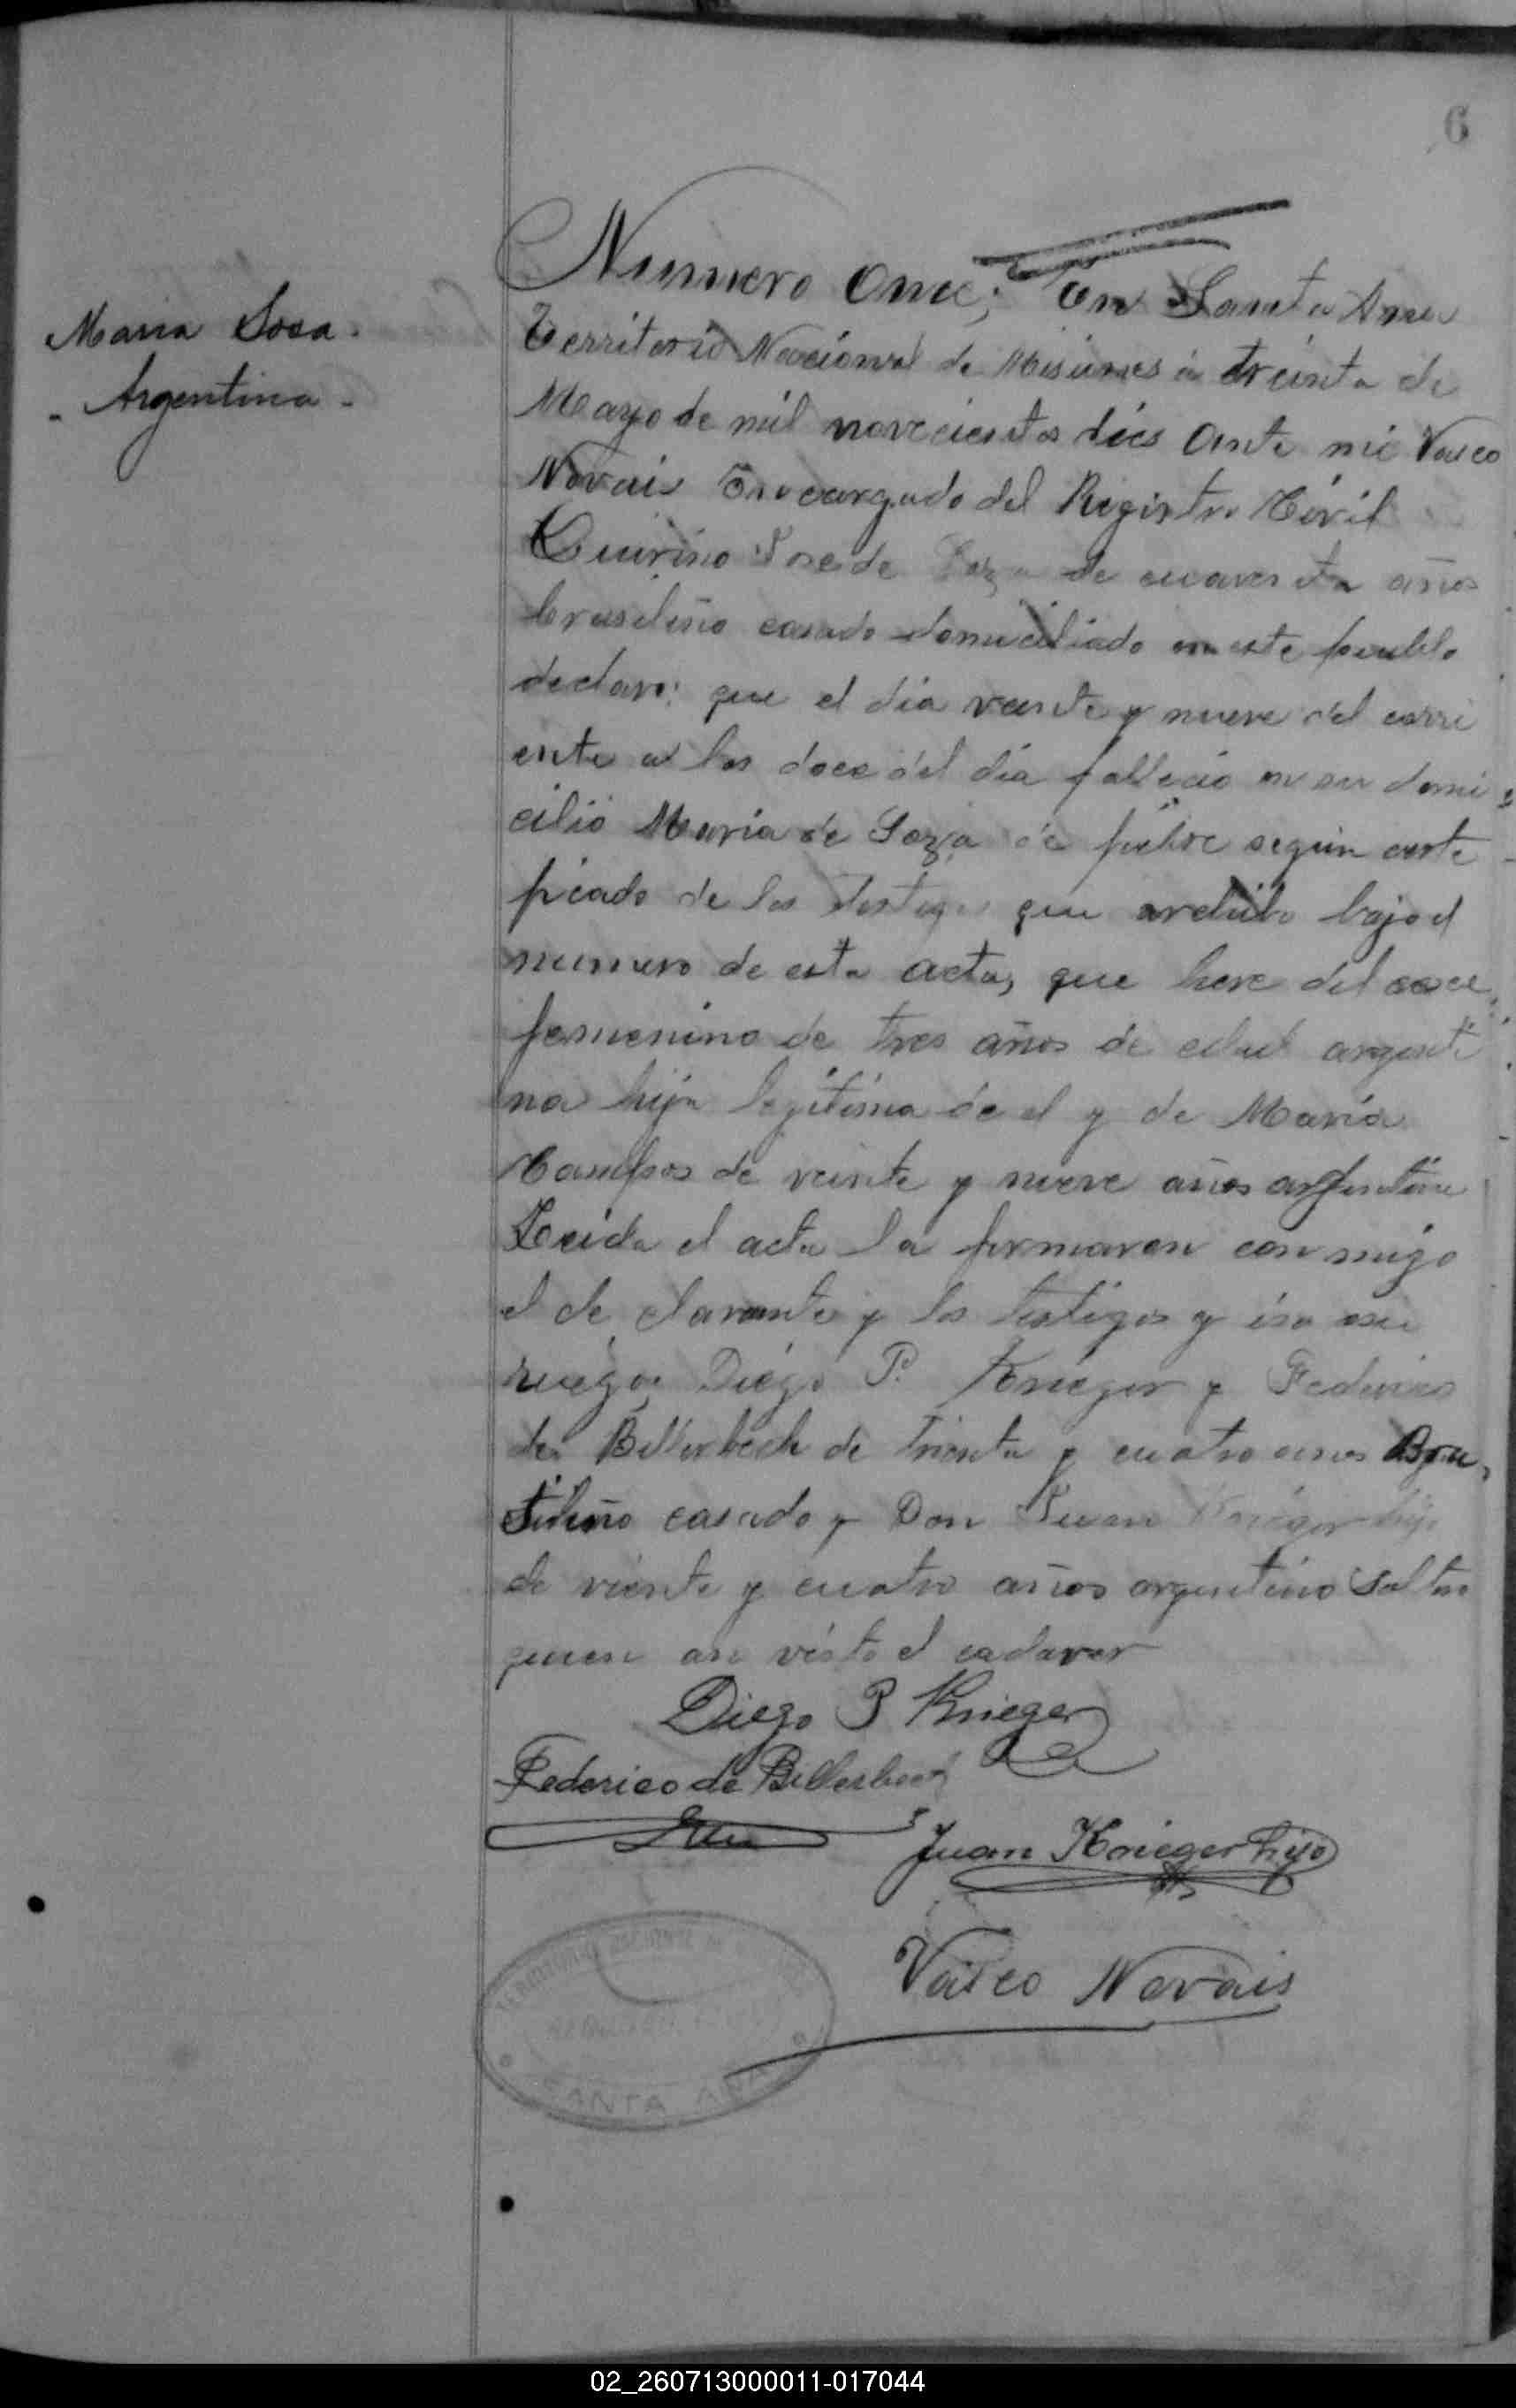 6
Maria Sosa.
- Argentina -
Numero Once; En Santa Ana
Territorio Nacional de Misiones á treinta de
Mayo de mil novecientos dies Ante mi Vasco
Novais Encargado del Registro Civil
Quirino Jose de Soza de cuarenta años
brasileño casado domiciliado en este pueblo
declaro: que el dia veinte y nueve del corri
ente a las doce del dia fallecio en su domi
cilio Maria de Soza de fiebre segun certe
ficado de los testigos que archibo bajo el
numero de esta acta, que hera del sexcu
femenino de tres años de edad argenti
na hija legitima de el y de Maria
Campos de veinte y nueve años argentina
Leida el acta la firmaron con migo
el de clarante y los testigos y iso asu
ruego Diego P. Krieger y Federico
de Billerbeck de trienta y cuatro anos Bra
sileño casado y Don Juan Krieger hijo
de viente y cuatro años argentino Soltero
quien an visto el cadaver
Diego P Krieger
Federico de Billerbeck
Juan Krieger hijo
Vasco Novais
SANTA ANA
02_260713000011-017044